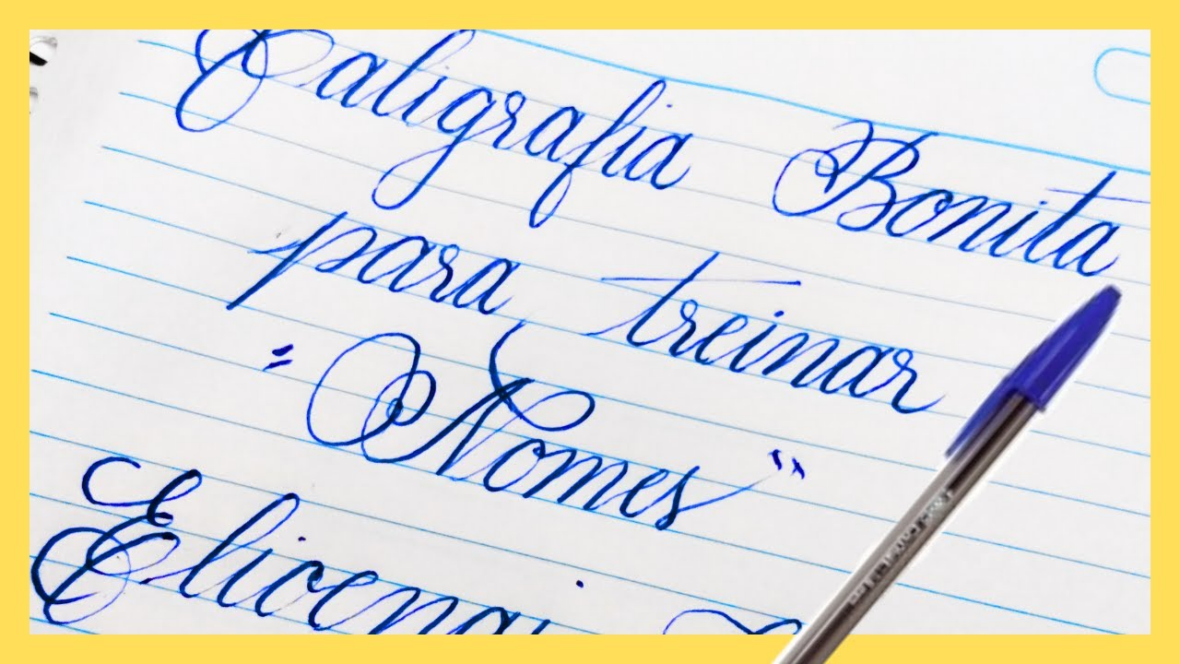 Caligrafia Bonita
para treinar
"Nomes"
Elioenai